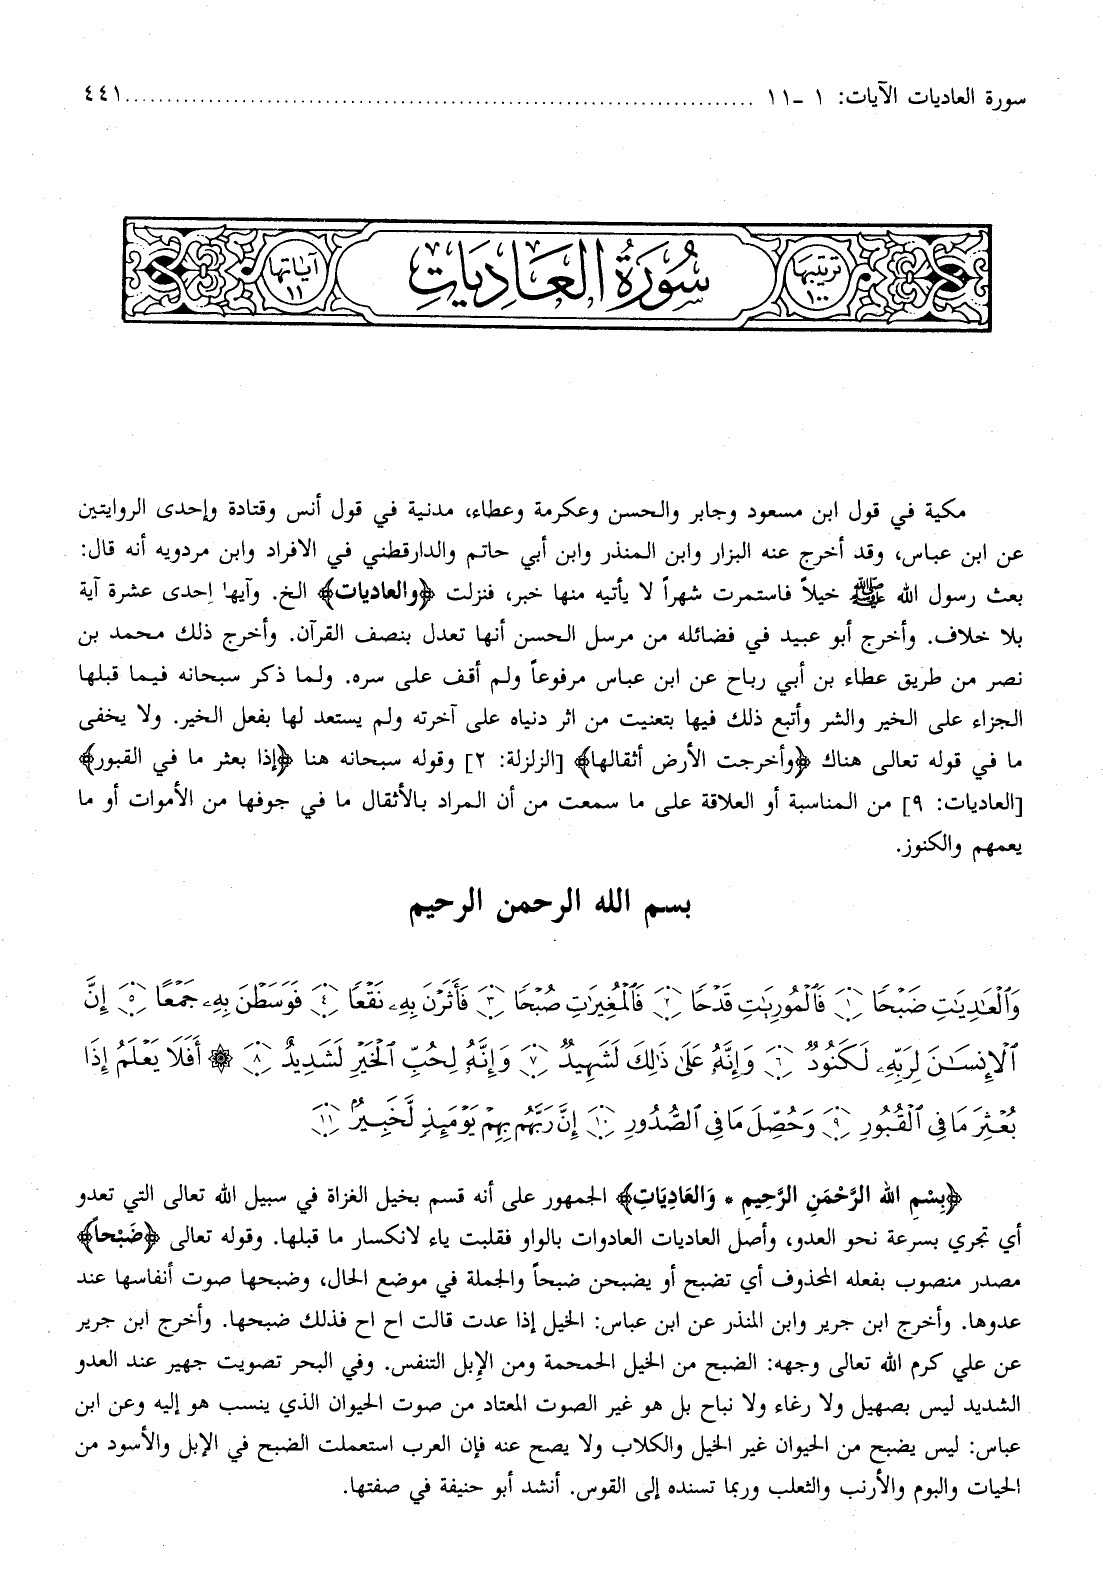 سورة العاديات الآيات: ١ -١١ ..................................................................................... ٤٤١
ترتيبها ١٠٠ سُورَةُ الْعَادِيَاتِ آياتها ١١
مكية في قول ابن مسعود وجابر والحسن وعكرمة وعطاء، مدنية في قول أنس وقتادة وإحدى الروايتين
عن ابن عباس، وقد أخرج عنه البزار وابن المنذر وابن أبي حاتم والدارقطني في الافراد وابن مردويه أنه قال:
بعث رسول الله ﷺ خيلاً فاستمرت شهراً لا يأتيه منها خبر، فنزلت ﴿والعاديات﴾ الخ. وآيها إحدى عشرة آية
بلا خلاف. وأخرج أبو عبيد في فضائله من مرسل الحسن أنها تعدل بنصف القرآن. وأخرج ذلك محمد بن
نصر من طريق عطاء بن أبي رباح عن ابن عباس مرفوعاً ولم أقف على سره. ولما ذكر سبحانه فيما قبلها
الجزاء على الخير والشر وأتبع ذلك فيها بتعنيت من اثر دنياه على آخرته ولم يستعد لها بفعل الخير. ولا يخفى
ما في قوله تعالى هناك ﴿وأخرجت الأرض أثقالها﴾ [الزلزلة: ٢] وقوله سبحانه هنا ﴿إذا بعثر ما في القبور﴾
[العاديات: ٩] من المناسبة أو العلاقة على ما سمعت من أن المراد بالأثقال ما في جوفها من الأموات أو ما
يعمهم والكنوز.
بسم الله الرحمن الرحيم
وَٱلْعَٰدِيَٰتِ ضَبْحًا ١ فَٱلْمُورِيَٰتِ قَدْحًا ٢ فَٱلْمُغِيرَٰتِ صُبْحًا ٣ فَأَثَرْنَ بِهِۦ نَقْعًا ٤ فَوَسَطْنَ بِهِۦ جَمْعًا ٥ إِنَّ
ٱلْإِنسَٰنَ لِرَبِّهِۦ لَكَنُودٌ ٦ وَإِنَّهُۥ عَلَىٰ ذَٰلِكَ لَشَهِيدٌ ٧ وَإِنَّهُۥ لِحُبِّ ٱلْخَيْرِ لَشَدِيدٌ ٨ ۞ أَفَلَا يَعْلَمُ إِذَا
بُعْثِرَ مَا فِي ٱلْقُبُورِ ٩ وَحُصِّلَ مَا فِي ٱلصُّدُورِ ١٠ إِنَّ رَبَّهُم بِهِمْ يَوْمَئِذٍ لَّخَبِيرٌۢ ١١
﴿بِسْمِ الله الرَّحْمَنِ الرَّحِيمِ * وَالعَادِيَاتِ﴾ الجمهور على أنه قسم بخيل الغزاة في سبيل الله تعالى التي تعدو
أي تجري بسرعة نحو العدو، وأصل العاديات العادوات بالواو فقلبت ياء لانكسار ما قبلها. وقوله تعالى ﴿ضَبْحاً﴾
مصدر منصوب بفعله المحذوف أي تضبح أو يضبحن ضبحاً والجملة في موضع الحال، وضبحها صوت أنفاسها عند
عدوها. وأخرج ابن جرير وابن المنذر عن ابن عباس: الخيل إذا عدت قالت اح اح فذلك ضبحها. وأخرج ابن جرير
عن علي كرم الله تعالى وجهه: الضبح من الخيل الحمحمة ومن الإبل التنفس. وفي البحر تصويت جهير عند العدو
الشديد ليس بصهيل ولا رغاء ولا نباح بل هو غير الصوت المعتاد من صوت الحيوان الذي ينسب هو إليه وعن ابن
عباس: ليس يضبح من الحيوان غير الخيل والكلاب ولا يصح عنه فإن العرب استعملت الضبح في الإبل والأسود من
الحيات والبوم والأرنب والثعلب وربما تسنده إلى القوس. أنشد أبو حنيفة في صفتها.